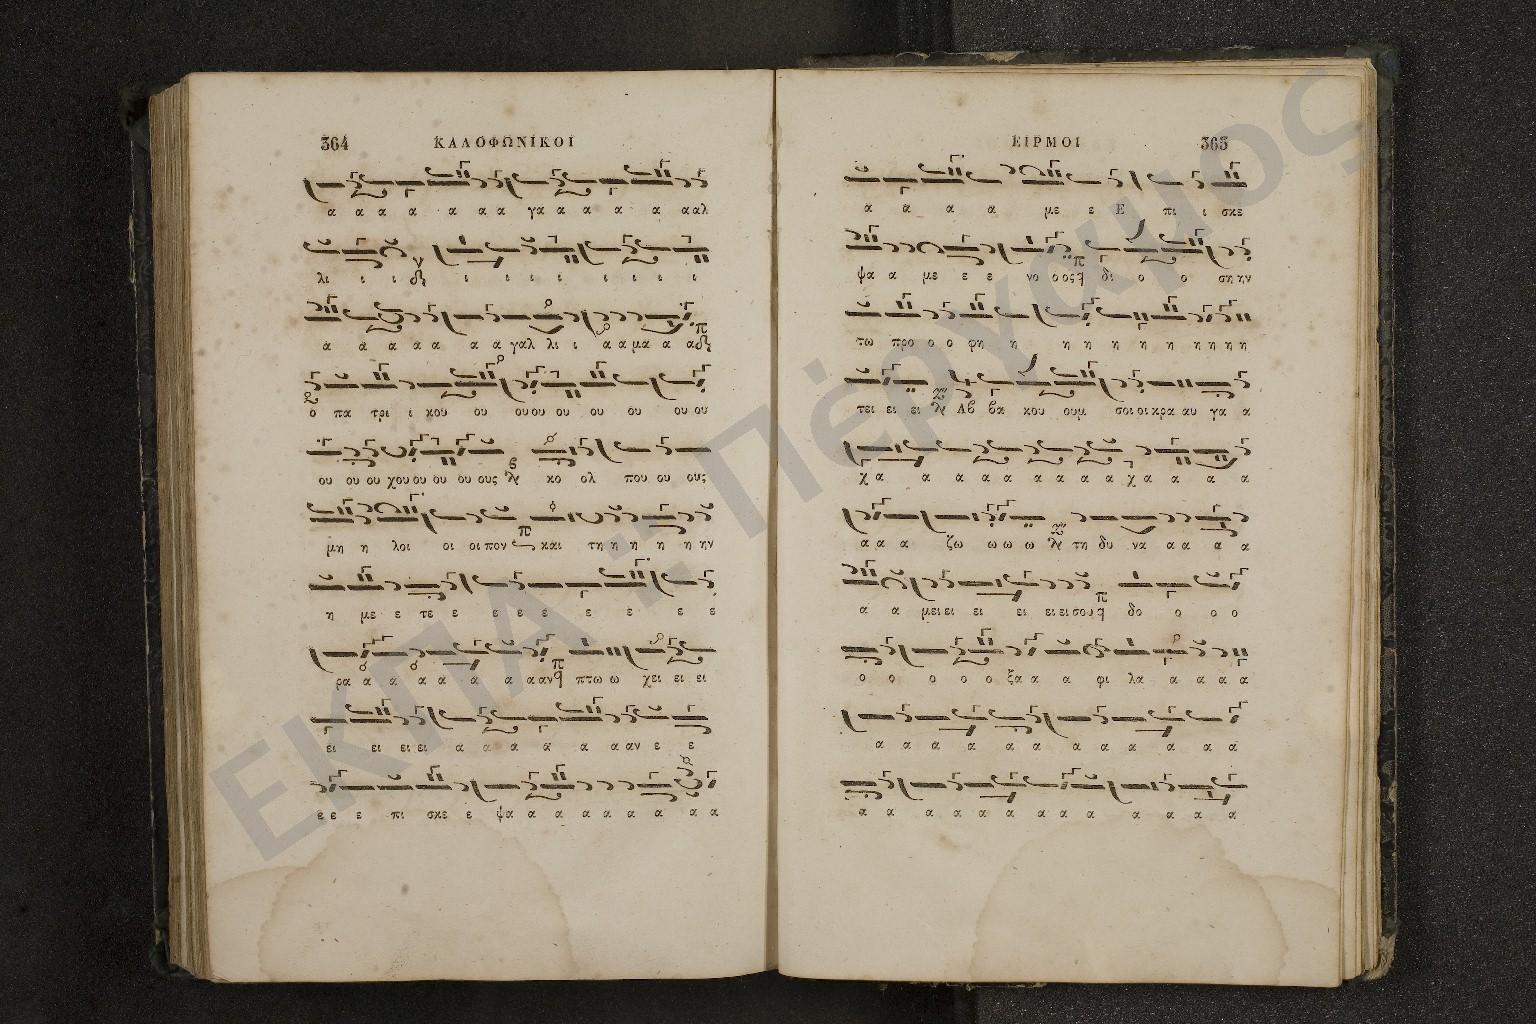 364 ΚΑΛΟΦΩΝΙΚΟΙ
α α α α α α α γα α α α α α αλ
λι ι ι ι ι ι ι ι ι ι ι
α α α α α α α γαλ λι ι α α μα α α
ο πα τρι ι κου ου ου ου ου ου ου ου ου
ου ου ου χου ου ου ου ους κο ολ που ου ους
μη η λοι οι οι πον και τη η η η η ην
η με ε τε ε ε ε ε ε ε ε ε
ρα α α α α α α α αν πτω ω χει ει ει
ει ει ει ει α α α α α α α αν ε ε
ε ε ε πι σκε ε ψα α α α α α α α α
ΕΙΡΜΟΙ 365
α α α α με ε Ε πι ι σκε
ψα α με ε ε νο ο ος δι ο ο ση ην
τω προ ο ο φη η η η η η η η η η
τει ει ει Αβ βα κου ουμ σοι οι κρα αυ γα α
χα α α α α α α α α χα α α α
α α α ζω ω ω ω τη δυ να α α α α
α α μει ει ει ει ει ει σου δο ο ο ο
ο ο ο ο ο ξα α α φι λα α α α α
α α α α α α α α α α α α
α α α α α α α α α α α α
ΕΚΠΑ :: Πέργαμος